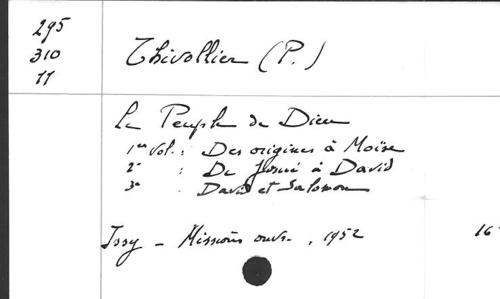 295
310
11
Thivollier (P.)
Le Peuple de Dieu
1er Vol. : Des origines à Moïse
2e : De Josué à David
3e : David et Salomon
Issy - Missions ouvr. , 1952
16